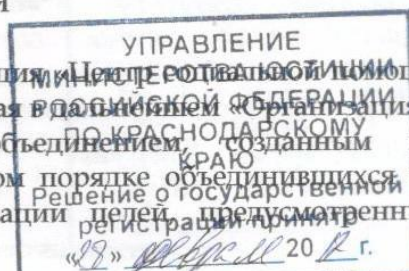 УПРАВЛЕНИЕ
МИНИСТЕРСТВА ЮСТИЦИИ
РОССИЙСКОЙ ФЕДЕРАЦИИ
ПО КРАСНОДАРСКОМУ
КРАЮ
Решение о государственной
регистрации принято
«28» февраля 2012 г.
«Центр социальной помощ
ая в дальнейшем «Организация
объединением, созданным
ом порядке объединившихся
ации целей, предусмотренн